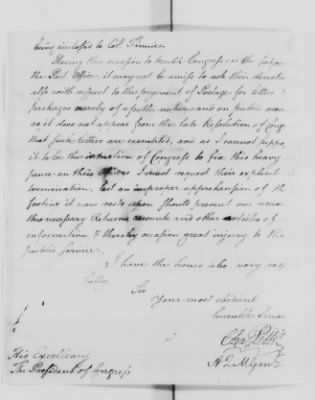 being inclosed to Col. Finnie.
Having this occasion to trouble Congress on the subje
the Post Office, it may not be amiss to ask their direct
also with respect to the payment of Postage for letters
packages merely of a public nature and on public
as it does not appear from the late Resolution of Cong
that such letters are exempted, and as I cannot suppo
it to be the intention of Congress to fix this heavy
pence on their Officers I must request their explicit
termination, lest an improper apprehension of th
footing it now rests upon should prevent our
the necessary Returns accounts and other articles of
information & thereby occasion great injury to the
public service.
I have the honor to be very
Sir
Your most obedient
humble Serva
Cha Pettit
A Q M Genl
His Excellency
The President of Congress